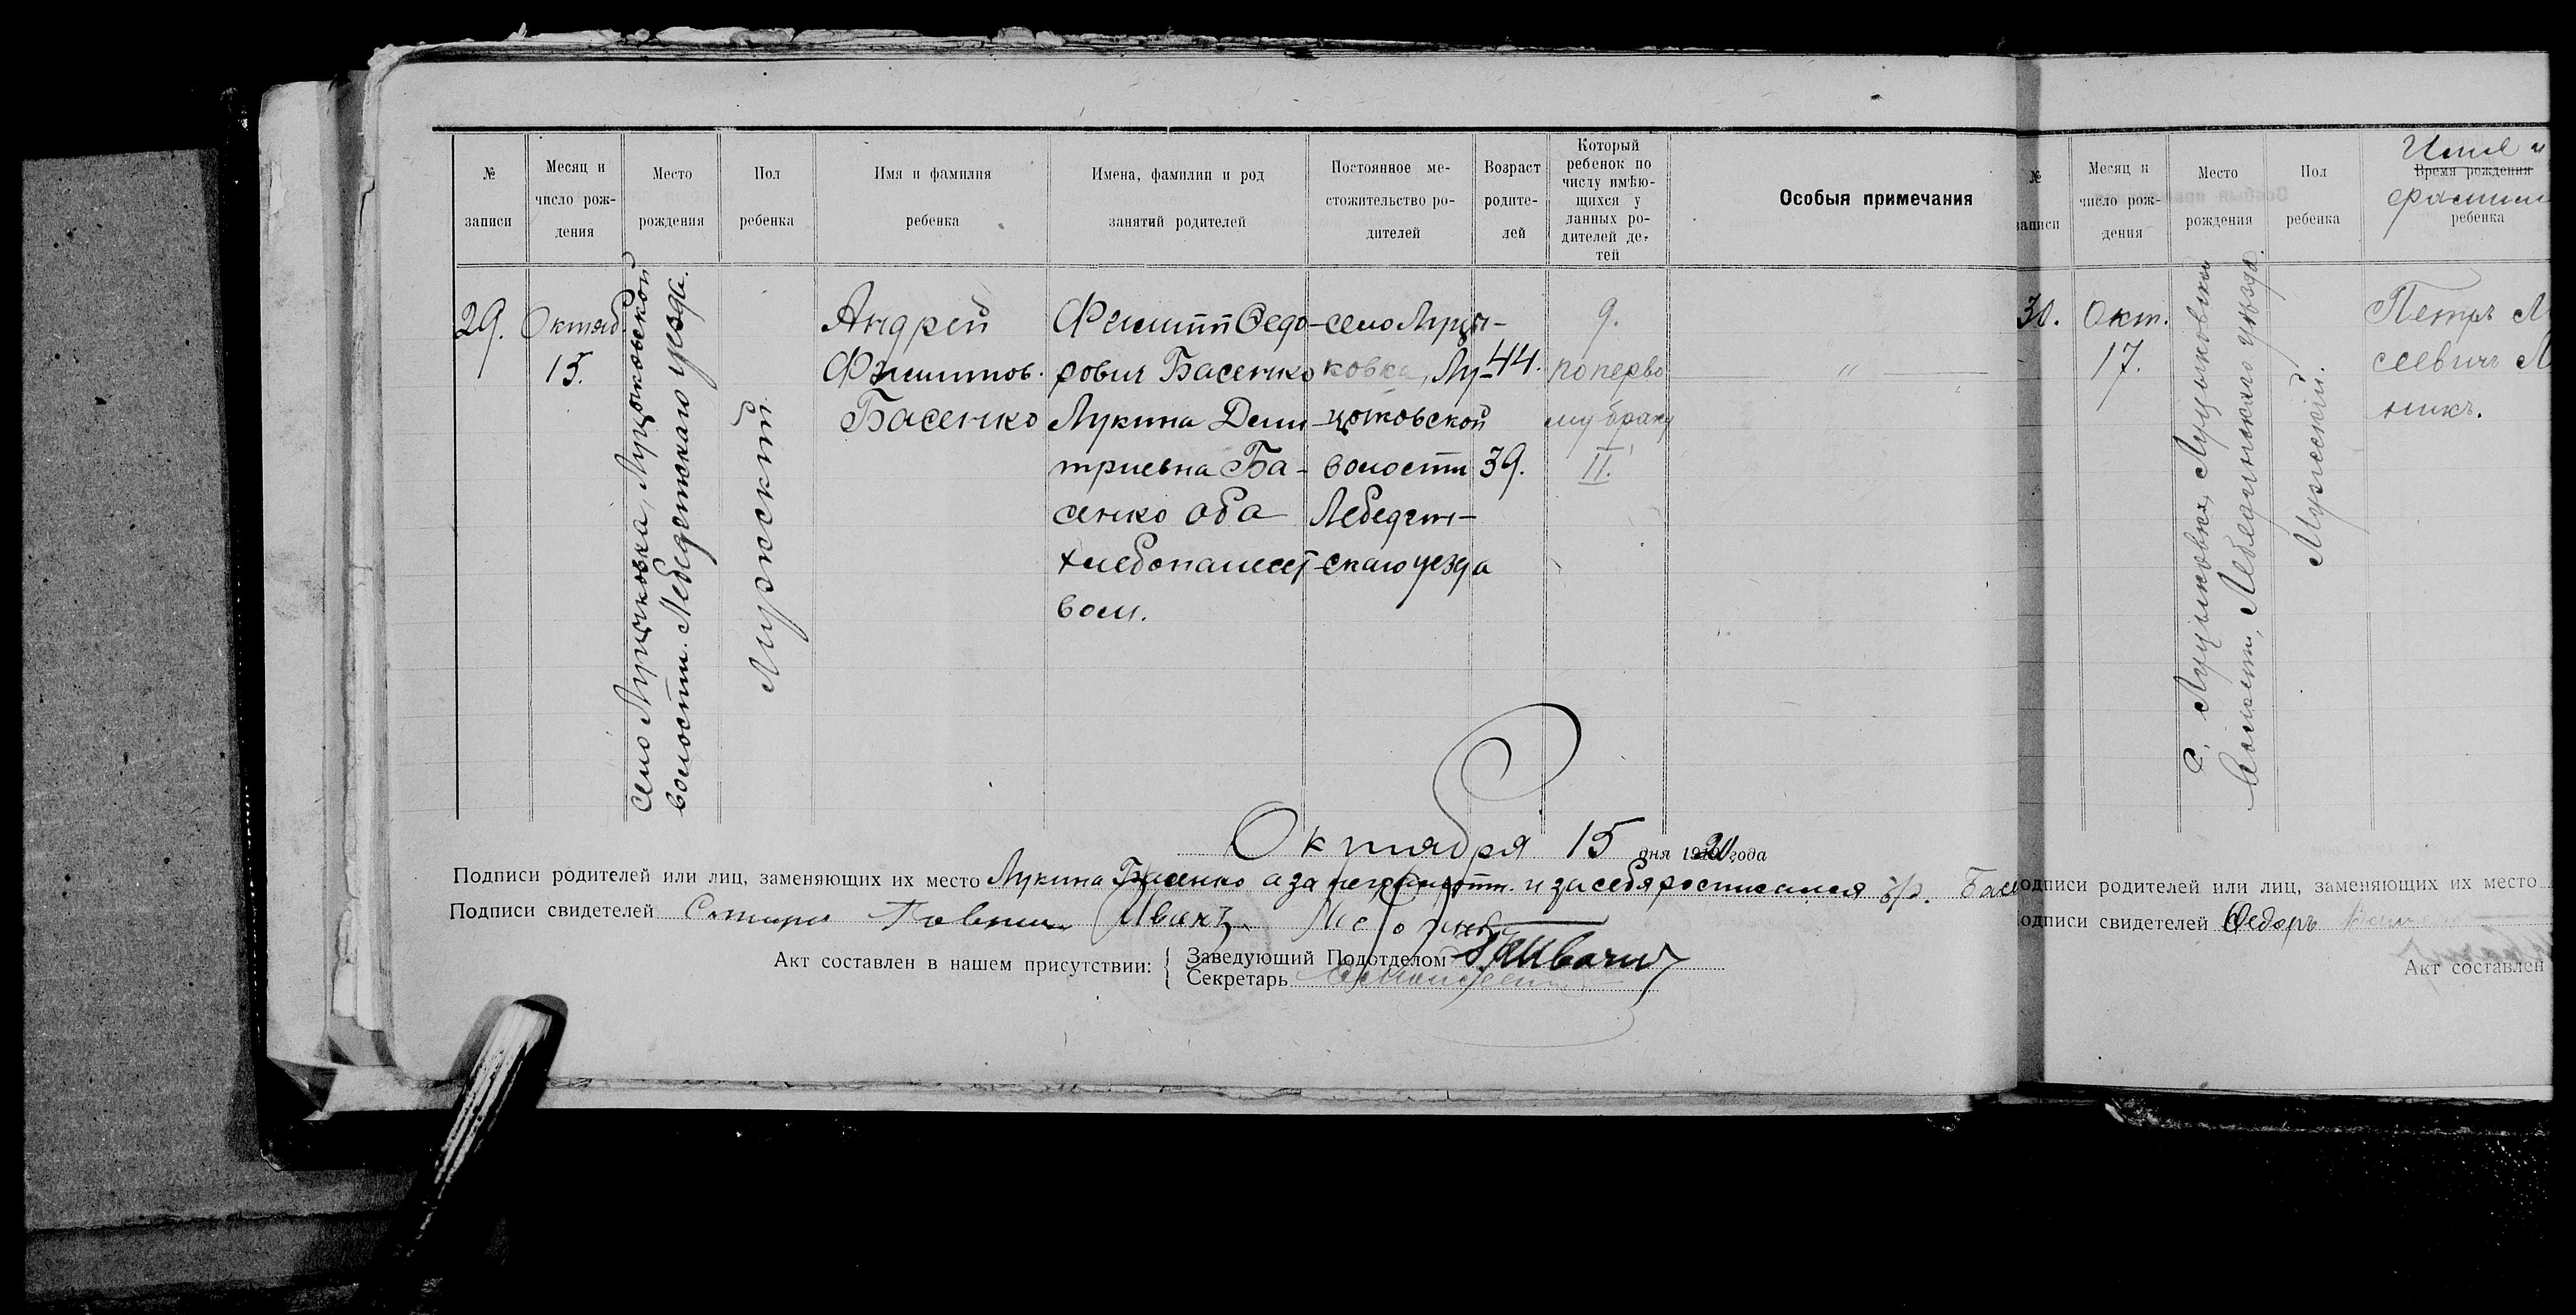 № записи
Месяц и число рождения
Место рождения
Пол ребенка
Имя и фамилия ребенка
Имена, фамилии и род занятий родителей
Постоянное местожительство родителей
Возраст родителей
Который ребенок по числу имѣющихся у данных родителей детей
Особыя примечания
29.
Октяб.
15.
село Луциковка, Луциковской
волости. Лебединскаго уезда.
Мужский
Андрей
Филиппов.
Басенко
Филипп Федо-
рович Басенко
Лукина Дми-
триевна Ба-
сенко оба
хлебопашест
вом.
село Луци-
ковка, Лу-
циковской
волости
Лебедин-
скаго уезда
44.
39.
9.
по перво
му браку
II.
"
Октября 15 дня 1920 года
Подписи родителей или лиц, заменяющих их место Лукина Басенко а за и за себя росписался
Подписи свидетелей Иванъ
Акт составлен в нашем присутствии:
Заведующий Подотделом
Секретарь
№ записи
Месяц и число рождения
Место рождения
Пол ребенка
Имя и
Время рождения
фамили
ребенка
30.
Окт.
17.
С. Луциковка, Луциковской
волости, Лебединскаго уѣзда.
Мужский.
Петръ
сеевичъ
никъ.
одписи родителей или лиц, заменяющих их место
одписи свидетелей Федоръ
Акт составлен